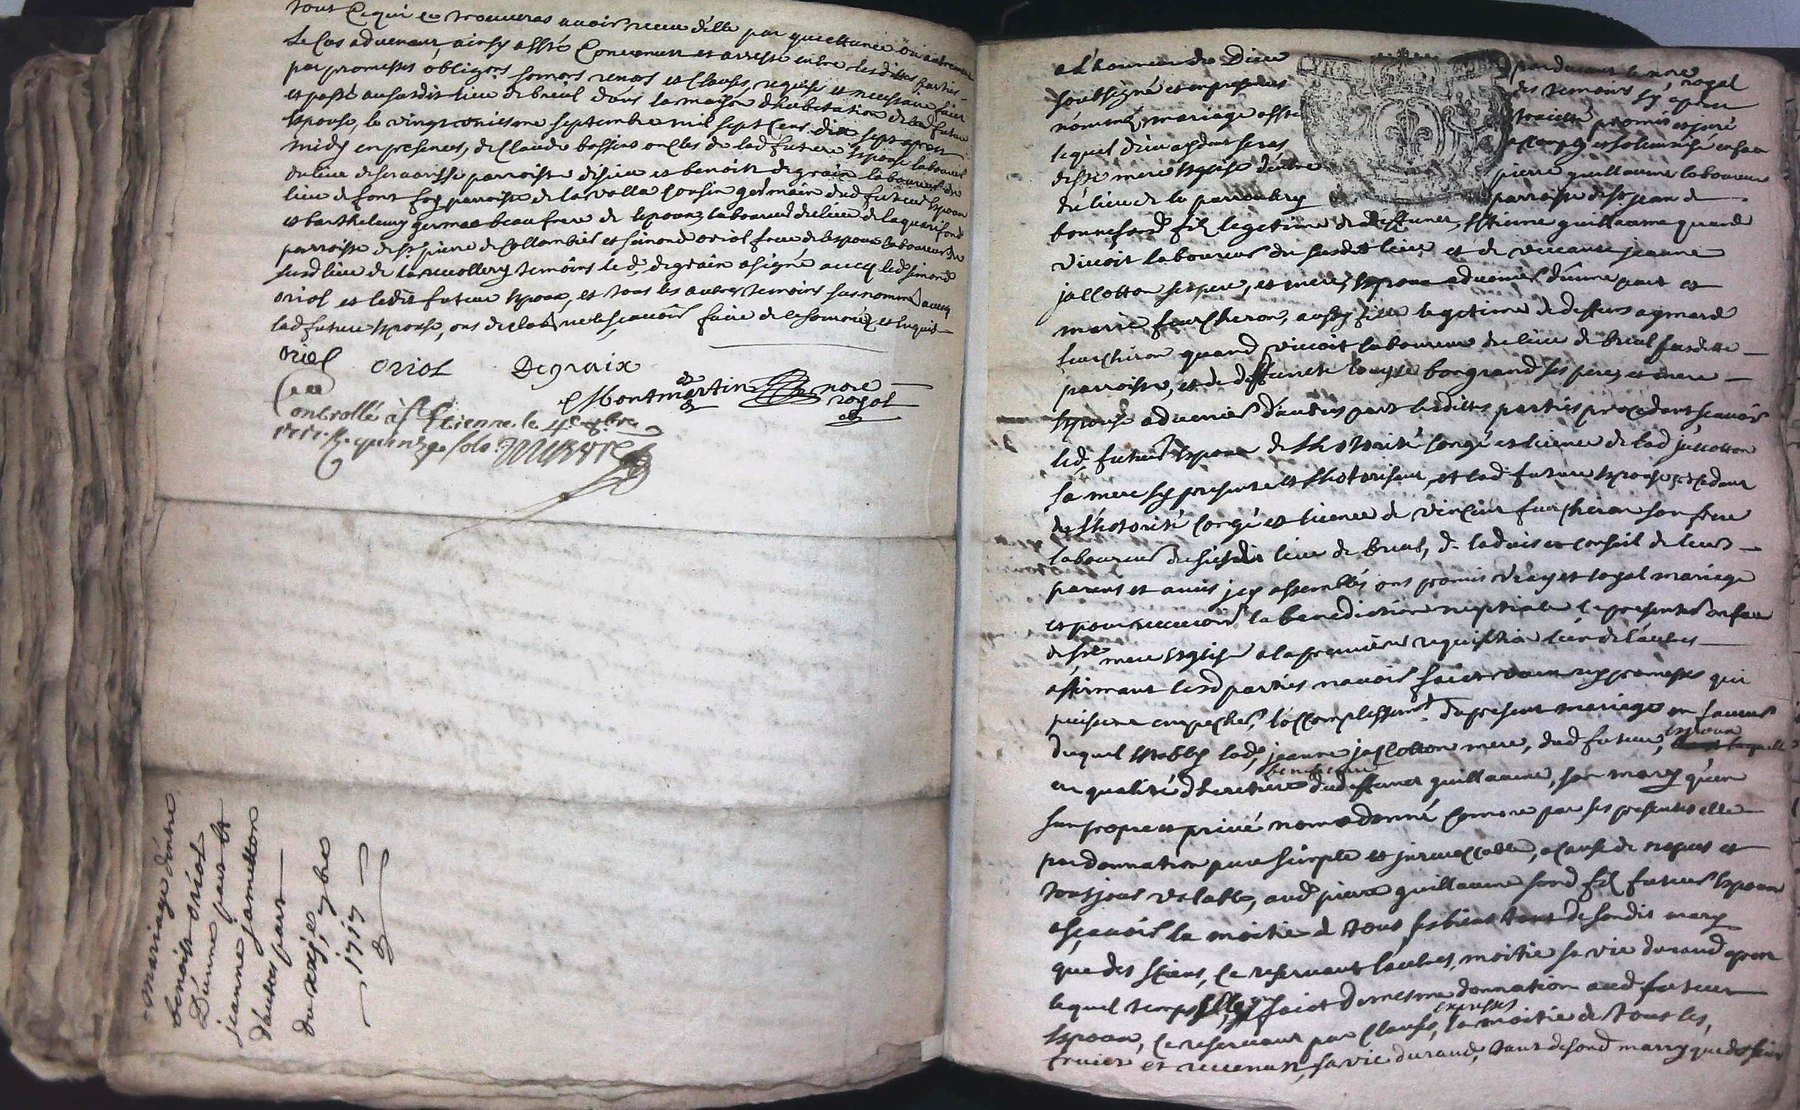 tout ce qui se trouveras avoir receu d'elle par quittance ou autrement
le cas advenant, ainsy a esté convenu et arresté entre lesdittes parties
par promesses obligons somons renons et clauses requises et necessaires fait
et passé au susdit lieu de breul dans la maison d'habitation de lad future
Espouse, le vingt uniesme septembre mil sept cens dix sept apres
midy en presence, de Claude bassin oncles de lad future Espouse laboureur
du lieu de parroisse et benoist degraix laboureur du
lieu de font foy parroisse de la valla cousin germain dud futeur Espoux
et barthelemy germae beau frere de lepoux laboureur du lieu de
parroisse de st piere de Collombier et simond oriol frere de lespoux laboureur du
susd lieu de temoins led. degraix a signé avecq led simond
oriol et ledit futeur Espoux, et tous les autres temoins susnommé avecq
lad future Espouse, ont declaré ne le scavoir faire de ce somonés et enquis
oriol oriol Degraix
Montmartin nore
royal
Controllé à st Etienne le 4e 8bre
1717. R. quinze sols
mariage d'entre
benoist oriol
D'une part et
jeanne jametton
d'autre part
du xxje 7bre
1717
a l'honneur de Dieu pardevant le nore royal
soubsigné et en presence des temoins cy apres
nommés, mariage a esté traicté promis et juré
lequel Dieu aydant seras acomply et solemnisé en face
de ste mere Esglise d'entre piere guillaume laboureur
du lieu de parroisse de st jean de
bonnefond fil legitime de deffunct Estienne guillaume quand
vivoit laboureur du susdit lieu et de vivante jeanne
jallotton ses pere, et mere, Espoux advenir d'une part et
marie fourcheron, aussy fille legitime de deffunt aymard
fourchiron quand vivoit laboureur du lieu de breul susditte
parroisse, et de deffuncte louyse bongrand ses pere et mere
Espouse advenir d'autre part lesdittes parties procedant scavoir
led. futeur Espoux de lhotorité congé et licence de lad jallotton
sa mere cy presente et lhotorisant, et lad future Espouse procedant
de lhotorité congé et licence de vincent fourcheron son frere
laboureur du susdit lieu de breul, de ladvis et conseil de leurs
parens et amis jcy assemblés ont promis vray et loyal mariage
et pour recevoir la benediction nuptiale se presenter en face
de ste mere Esglise a la premiere requisition lun de lautre
affirmant lesd parties n'avoir faict aucunes promesses qui
puissent empecher l'accomplissement du present mariage en faveur
duquel Establis lad jeanne jallotton mere, dud futeur, Espoux laquelle
en qualité d'heritiere beneficiere dudeffunct guillaume, son mary qu'en
son propre et privé nom a donné comme par ses presentes elle
par donnation pure simple et jrrevocable, a cause de nopces et
toutjours vallable, aud piere guillaume sond fil futeur Espoux
ascavoir la moitié de tous ses biens tant de sondit mary
que des siens, ce reservant lautre moitié sa vie durand apres
lequel temps elle faict de mesme donnation aud futeur
Espoux, ce reservant par clause expresses la moitié de tous les
fruict et revenus, sa vie durand, tant de sond mary que des siens